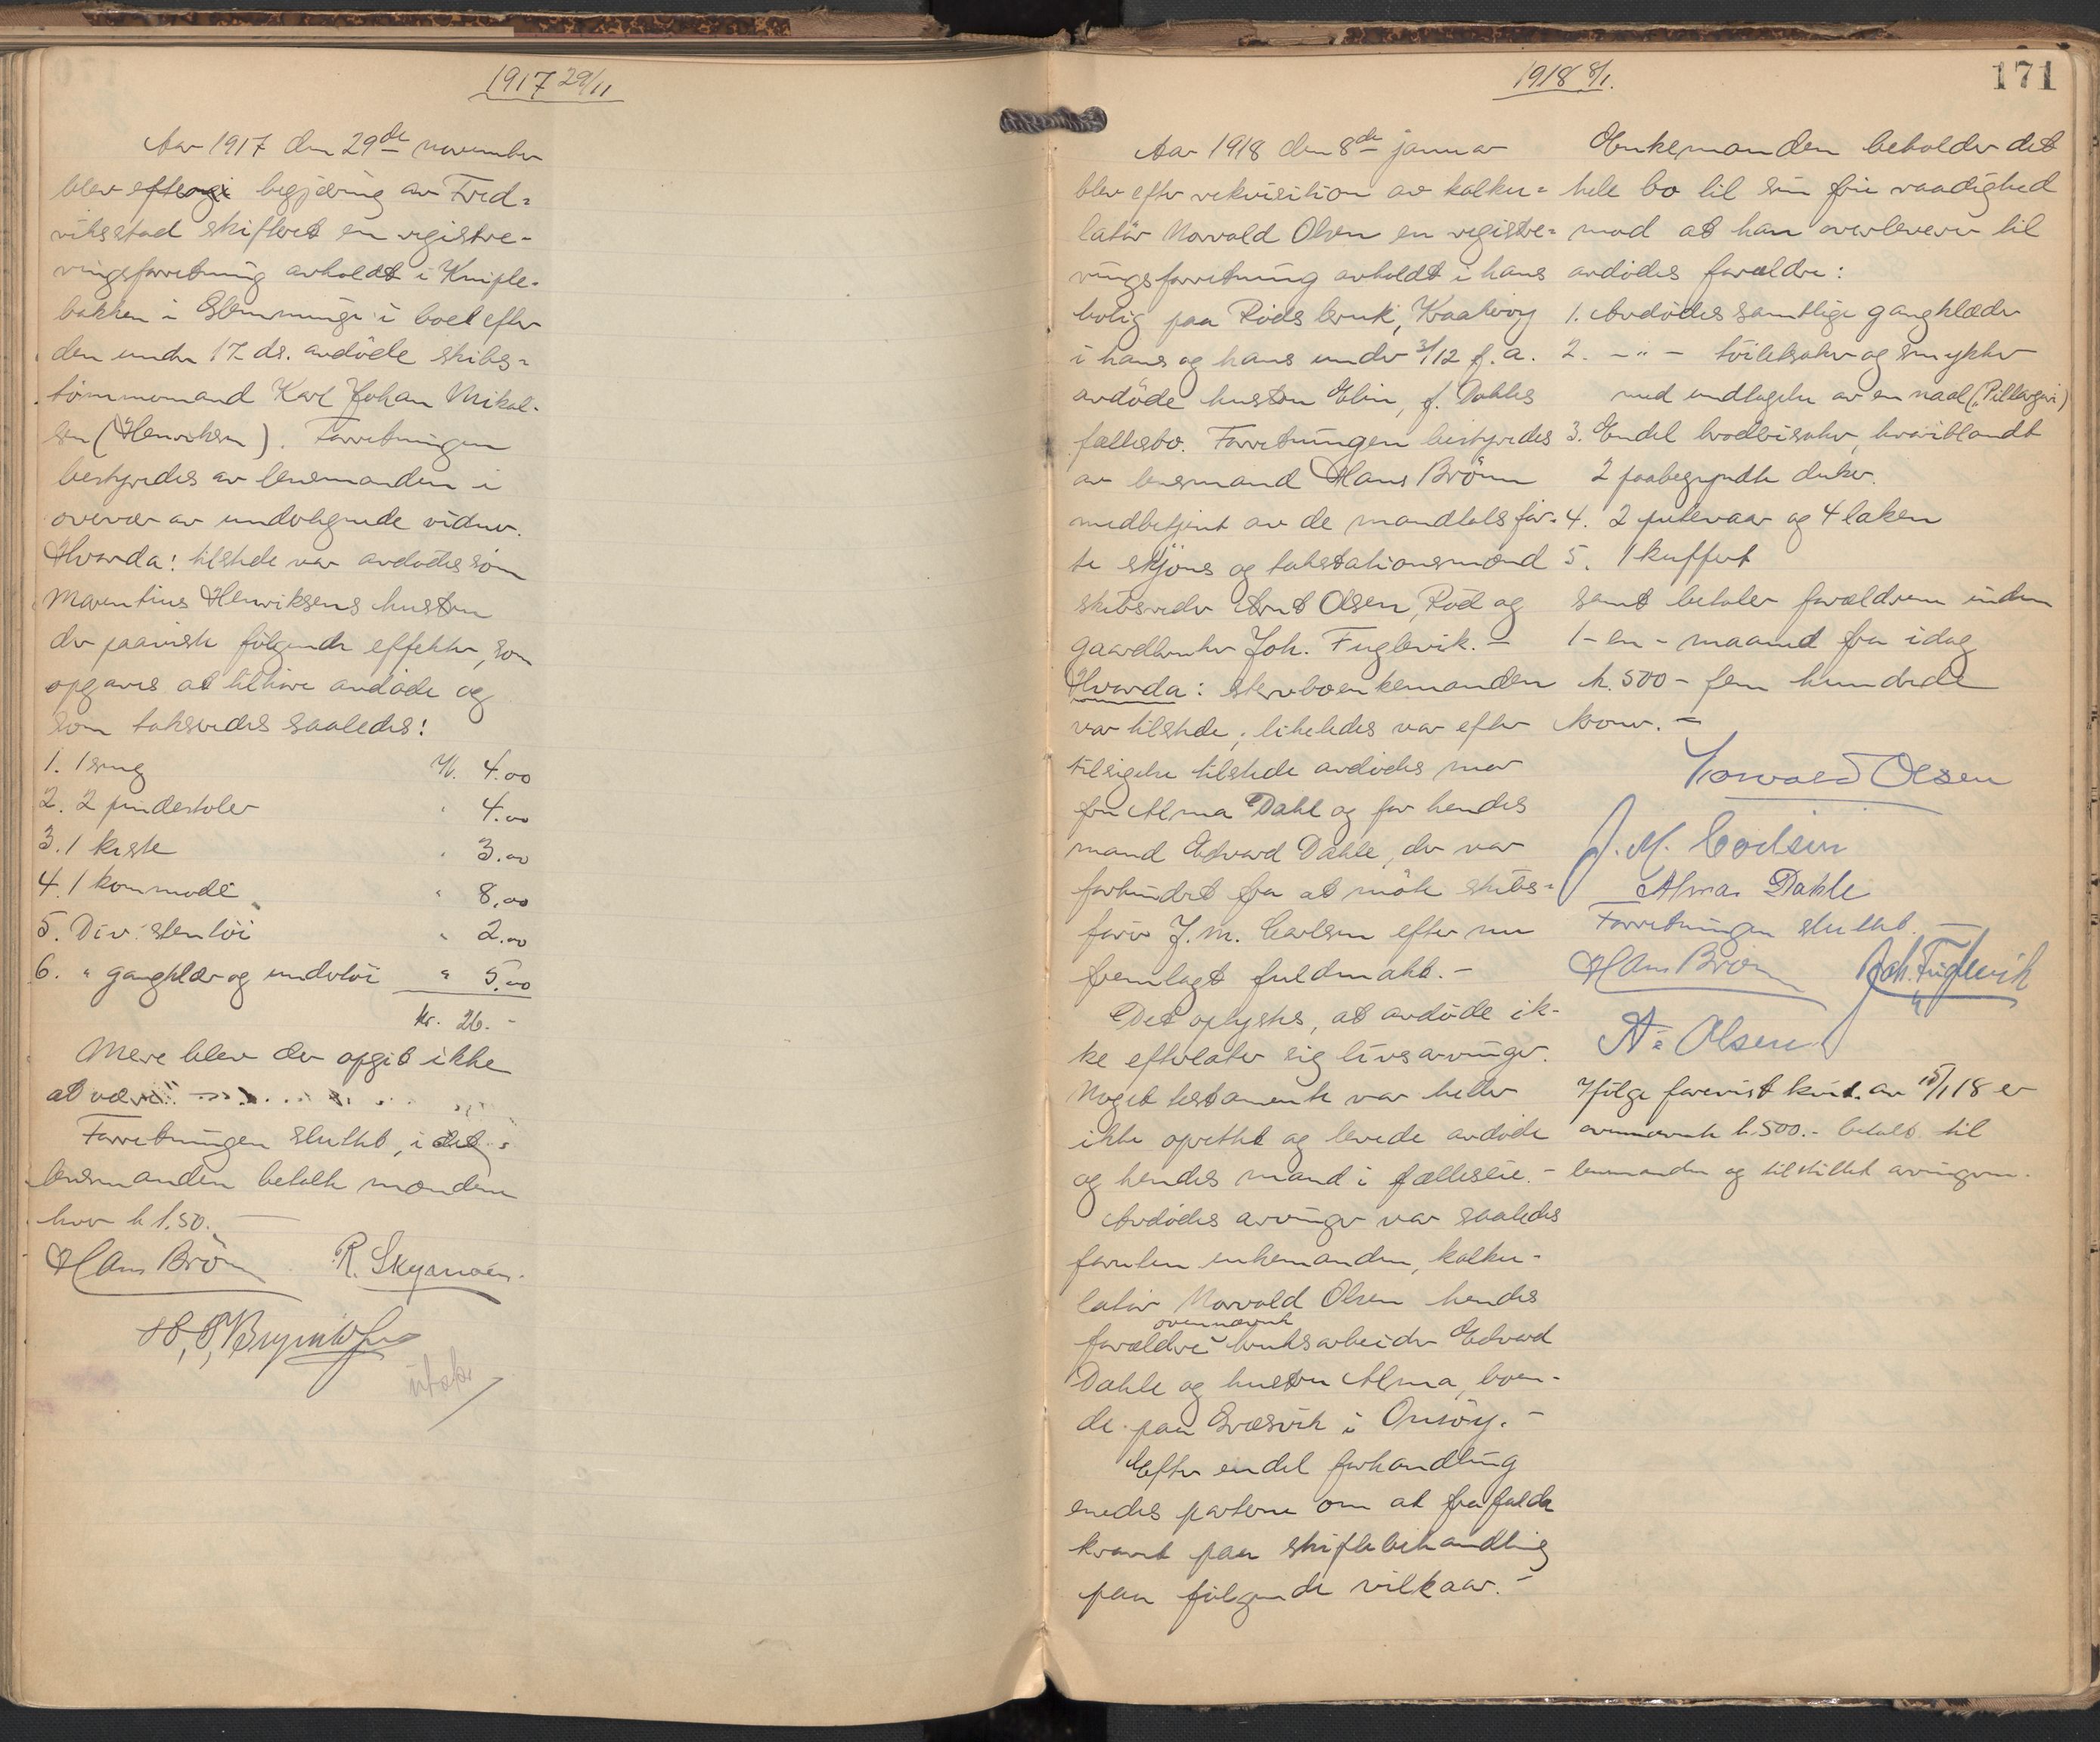 1917 29/11
Aar 1917 den 29de november
blev efter begjæring av Fred-
riksstad skifteret en registre-
ringsforretning avholdt i Kniple-
bakken i Glemminge i boet efter
den under 17 ds. avdöde skibs-
tömmermand Karl Johan Mikal-
sen (Henriksen). Forretningen
bestyredes av lensmanden i
overvær av undertegnede vidner.
Hvorda: tilstede var avdödes sön
Marentius Henriksens hustru
der paaviste fölgende effekter, som
opgaves at tilhöre avdöde og
som takseredes saaledes:
1. 1 seng kr. 4.00
2. 2 pindestoler " 4.00
3. 1 kiste " 3.00
4. 1 kommode " 8.00
5. Div. stentöi " 2.00
6. " gangklær og undertöi " 5.00
kr. 26.-
Mere blev der opgit ikke
at være
Forretningen sluttet, idet
lensmanden betalte mændene
hver kr 1.50.
Hans Bröm R. Skyanoen.
1918 8/1.
171
Aar 1918 den 8de januar
blev efter rekvisition av kalku-
latör Norvald Olsen en registre-
ringsforretning avholdt i hans
bolig paa Röds bruk, Kraakeröy
i hans og hans under 3/12 f.a.
avdöde hustru Elin, f. Dahles
fællesbo. Forretningen bestyredes
av lensmand Hans Bröm
medbetjent av de mandtalsför-
te skjöns og takstationsmænd
skibsreder Arnt Olsen, Röd og
gaardbruker Joh. Fuglevik. -
Hvorda: stervboenkemanden
var tilstede; likeledes var efter
tilsigelse tilstede avdödes mor
fru Alma Dahl og for hendes
mand Edvard Dahle, der var
forhindret fra at möte skibs-
förer J.M. Carlsen efter nu
fremlagt fuldmakt. -
Det oplystes, at avdöde ik-
ke efterlater sig livsarvinger.
Noget testamente var heller
ikke oprettet og levede avdöde
og hendes mand i fælleseie. -
Avdödes arvinger var saaledes
foruten enkemanden, kalku-
latör Norvald Olsen hendes
ovennævnte
forældre bruksarbeider Edvard
Dahle og hustru Alma, boen-
de paa Græsvik i Onsöy. -
Efter endel forhandling
enedes parterne om at frafalde
kravet paa skiftebehandling
paa fölgende vilkaar. -
Enkemanden beholder det
hele bo til sin frie raadighed
mod at han overleverer til
avdödes forældre:
1. Avdödes samtlige gangklæder
2. - " - toiletsaker og smykker
med undtagelse av en naal (
3. Endel broderisaker, hvoriblandt
2 paabegyndte duker.
4. 2 putevaar og 4 laken
5. 1 kuffert
samt betaler forældrene inden
1 - en - maaned fra idag
kr. 500 - fem hundrede
kroner. -
Norvald Olsen
J. M. Carlsen
Alma Dahle
Forretningen sluttet. -
Hans Bröm Joh. Fuglevik
A. Olsen
Ifölge forevist kvit. av 15/1 18 er
ovennævnte kr. 500.- betalt til
lensmanden og tilstillet arvingerne.